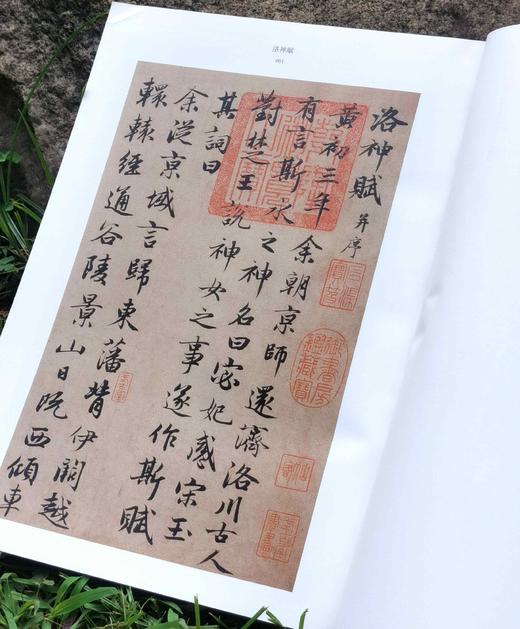 洛神賦
001
洛神賦 并序
黃初三年余朝京師還濟洛川古人
有言斯水之神名曰宓妃感宋玉
對楚王說神女之事遂作斯賦
其詞曰
余從京域言歸東藩背伊闕越
轘轅經通谷陵景山日既西傾車
御書房鑑藏寶